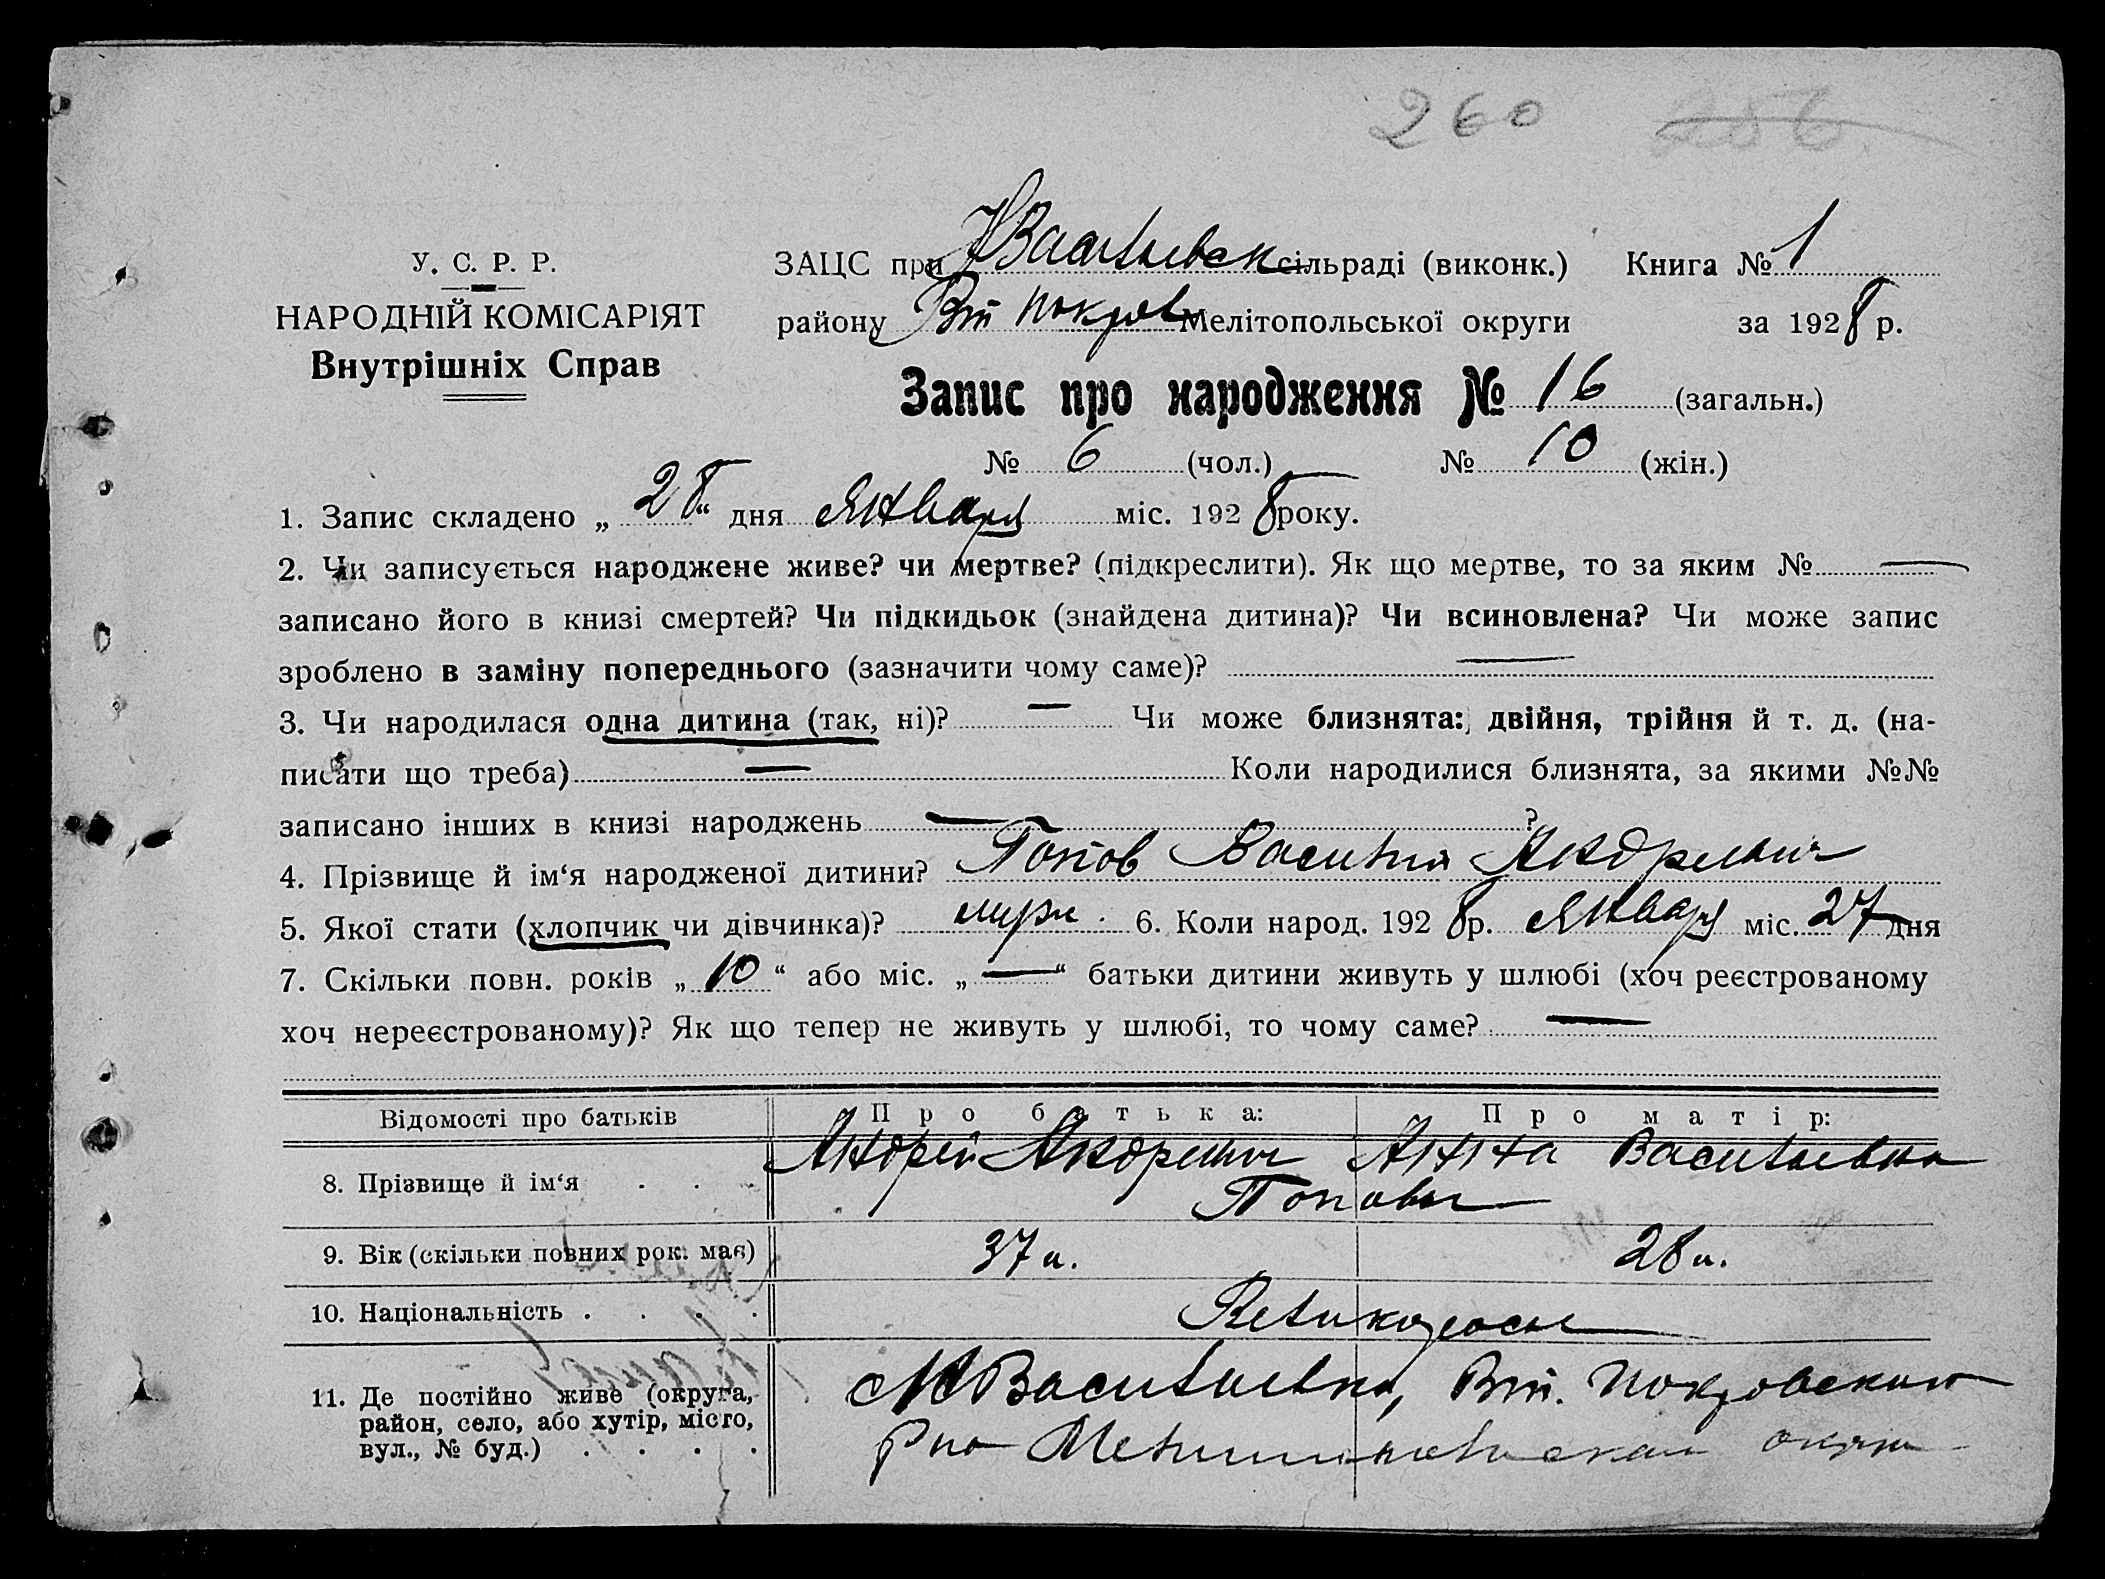 260 256
У. С. Р. Р.
НАРОДНІЙ КОМІСАРІЯТ
Внутрішніх Справ
ЗАЦС при НВасильевск сільраді (виконк.) Книга № 1
району Вт Покров Мелітопольської округи за 1928 р.
Запис про народження № 16 (загальн.)
№ 6 (чол.) № 10 (жін.)
1. Запис складено „28“ дня Января міс. 1928 року.
2. Чи записується народжене живе? чи мертве? (підкреслити). Як що мертве, то за яким № —
записано його в книзі смертей? Чи підкидьок (знайдена дитина)? Чи всиновлена? Чи може запис
зроблено в заміну попереднього (зазначити чому саме)? —
3. Чи народилася одна дитина (так, ні)? — Чи може близнята: двійня, трійня й т. д. (на-
писати що треба) — Коли народилися близнята, за якими №№
записано інших в книзі народжень — ?
4. Прізвище й ім‘я народженої дитини? Попов Василий Андреевич
5. Якої стати (хлопчик чи дівчинка)? муж. 6. Коли народ. 1928 р. Января міс. 27 дня
7. Скільки повн. років „10“ або міс. „—“ батьки дитини живуть у шлюбі (хоч реєстрованому
хоч нереєстрованому)? Як що тепер не живуть у шлюбі, то чому саме? —
Відомості про батьків Про батька: Про матір:
8. Прізвище й ім‘я . . . Андрей Андреевич Анна Васильевна
Поповы
9. Вік (скільки повних рок. має) 37 л. 28 л.
10. Національність . . . . Великороссы
11. Де постійно живе (округа,
район, село, або хутір, місто,
вул., № буд.) . . . .
НВасильевка, Вт. Покровского
р-на Мелитопольской округи